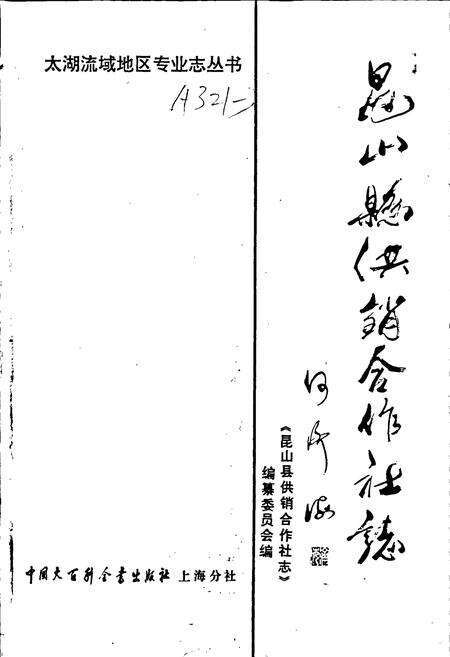 太湖流域地区专业志丛书
A321-2
昆山縣供销合作社誌
《昆山县供销合作社志》
编纂委员会编
中国大百科全书出版社 上海分社